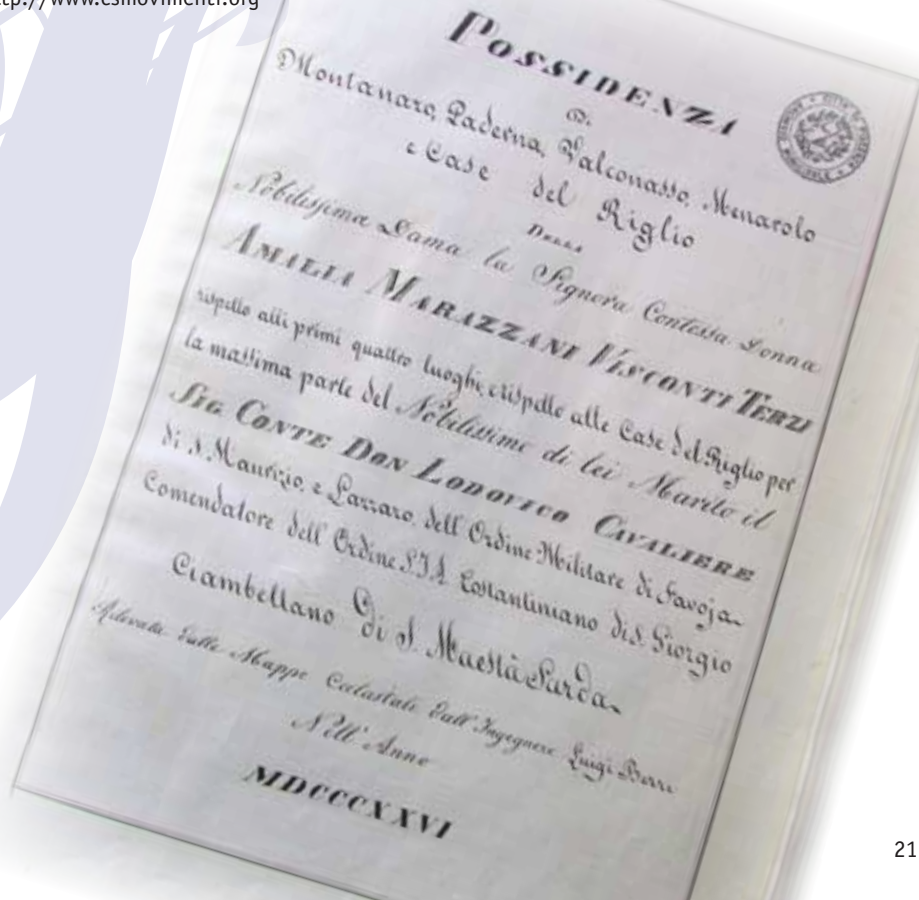 http://www.csmovimenti.org
POSSIDENZI
Di
Montanaro, Paderna, Valconasso, Menarolo
e Case del Riglio
DELLA
Nobilissima Dama la Signora Contessa Donna
AMALIA MARAZZANI VISCONTI TERZI
rispetto alli primi quattro luoghi, e rispetto alle Case del Riglio per
la massima parte del Nobilissimo di lei Marito il
SIG. CONTE DON LODOVICO CAVALIERE
di S. Maurizio, e Lazzaro, dell'Ordine Militare di Savoja
Comendatore dell'Ordine Costantiniano di S. Giorgio
Ciambellano Di S. Maestà Sarda
Rilevate dalle Mappe Catastali dall'Ingegnere Luigi
Nell'Anno
MDCCCXXVI
21